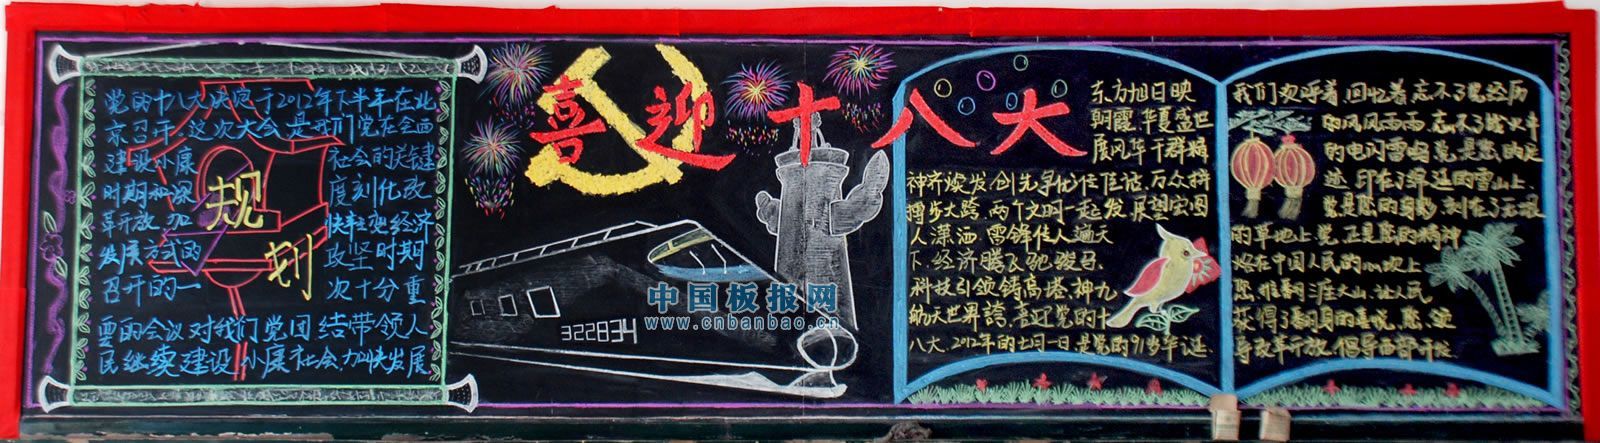 喜迎十八大
规划
党的十八大决定于2012年下半年在北
京召开.这次大会是我们党在全面
建设小康 社会的关键
时期和深 度刻化改
革开放.加 快转变经济
发展方式的 攻坚时期
召开的一 次十分重
要的会议对我们党团结带领人
民继续建设小康社会,加快发展
322834
中国板报网
www.cnbanbao.cn
东方旭日映
朝霞.华夏盛世
展风华干群精
神齐焕发,创先争优传佳话.万众拼
搏步大跨.两个文明一起发.展望宏图
人潇洒.雷锋传人遍天
下.经济腾飞驰骏马.
科技引领铸高塔.神九
航天世界誇,喜迎党的十
八大.2012年的七月一日是党的91岁华诞.
我们欢呼着.回忆着.忘不了党经历
的风风雨雨.忘不了战火中
的电闪雷鸣党.是您的足
迹.印在了绵延的雪山上.
党是您的身影.刻在了无垠
的草地上.党.正是您的精神
烙在中国人民的心坎上
您.推翻三座大山.让人民
获得了翻身的喜悦.您.
导改革开放.倡导西部开发.